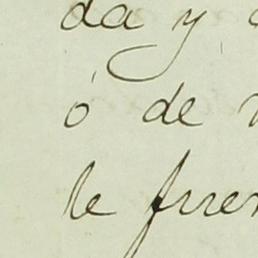 da y
ó de
le